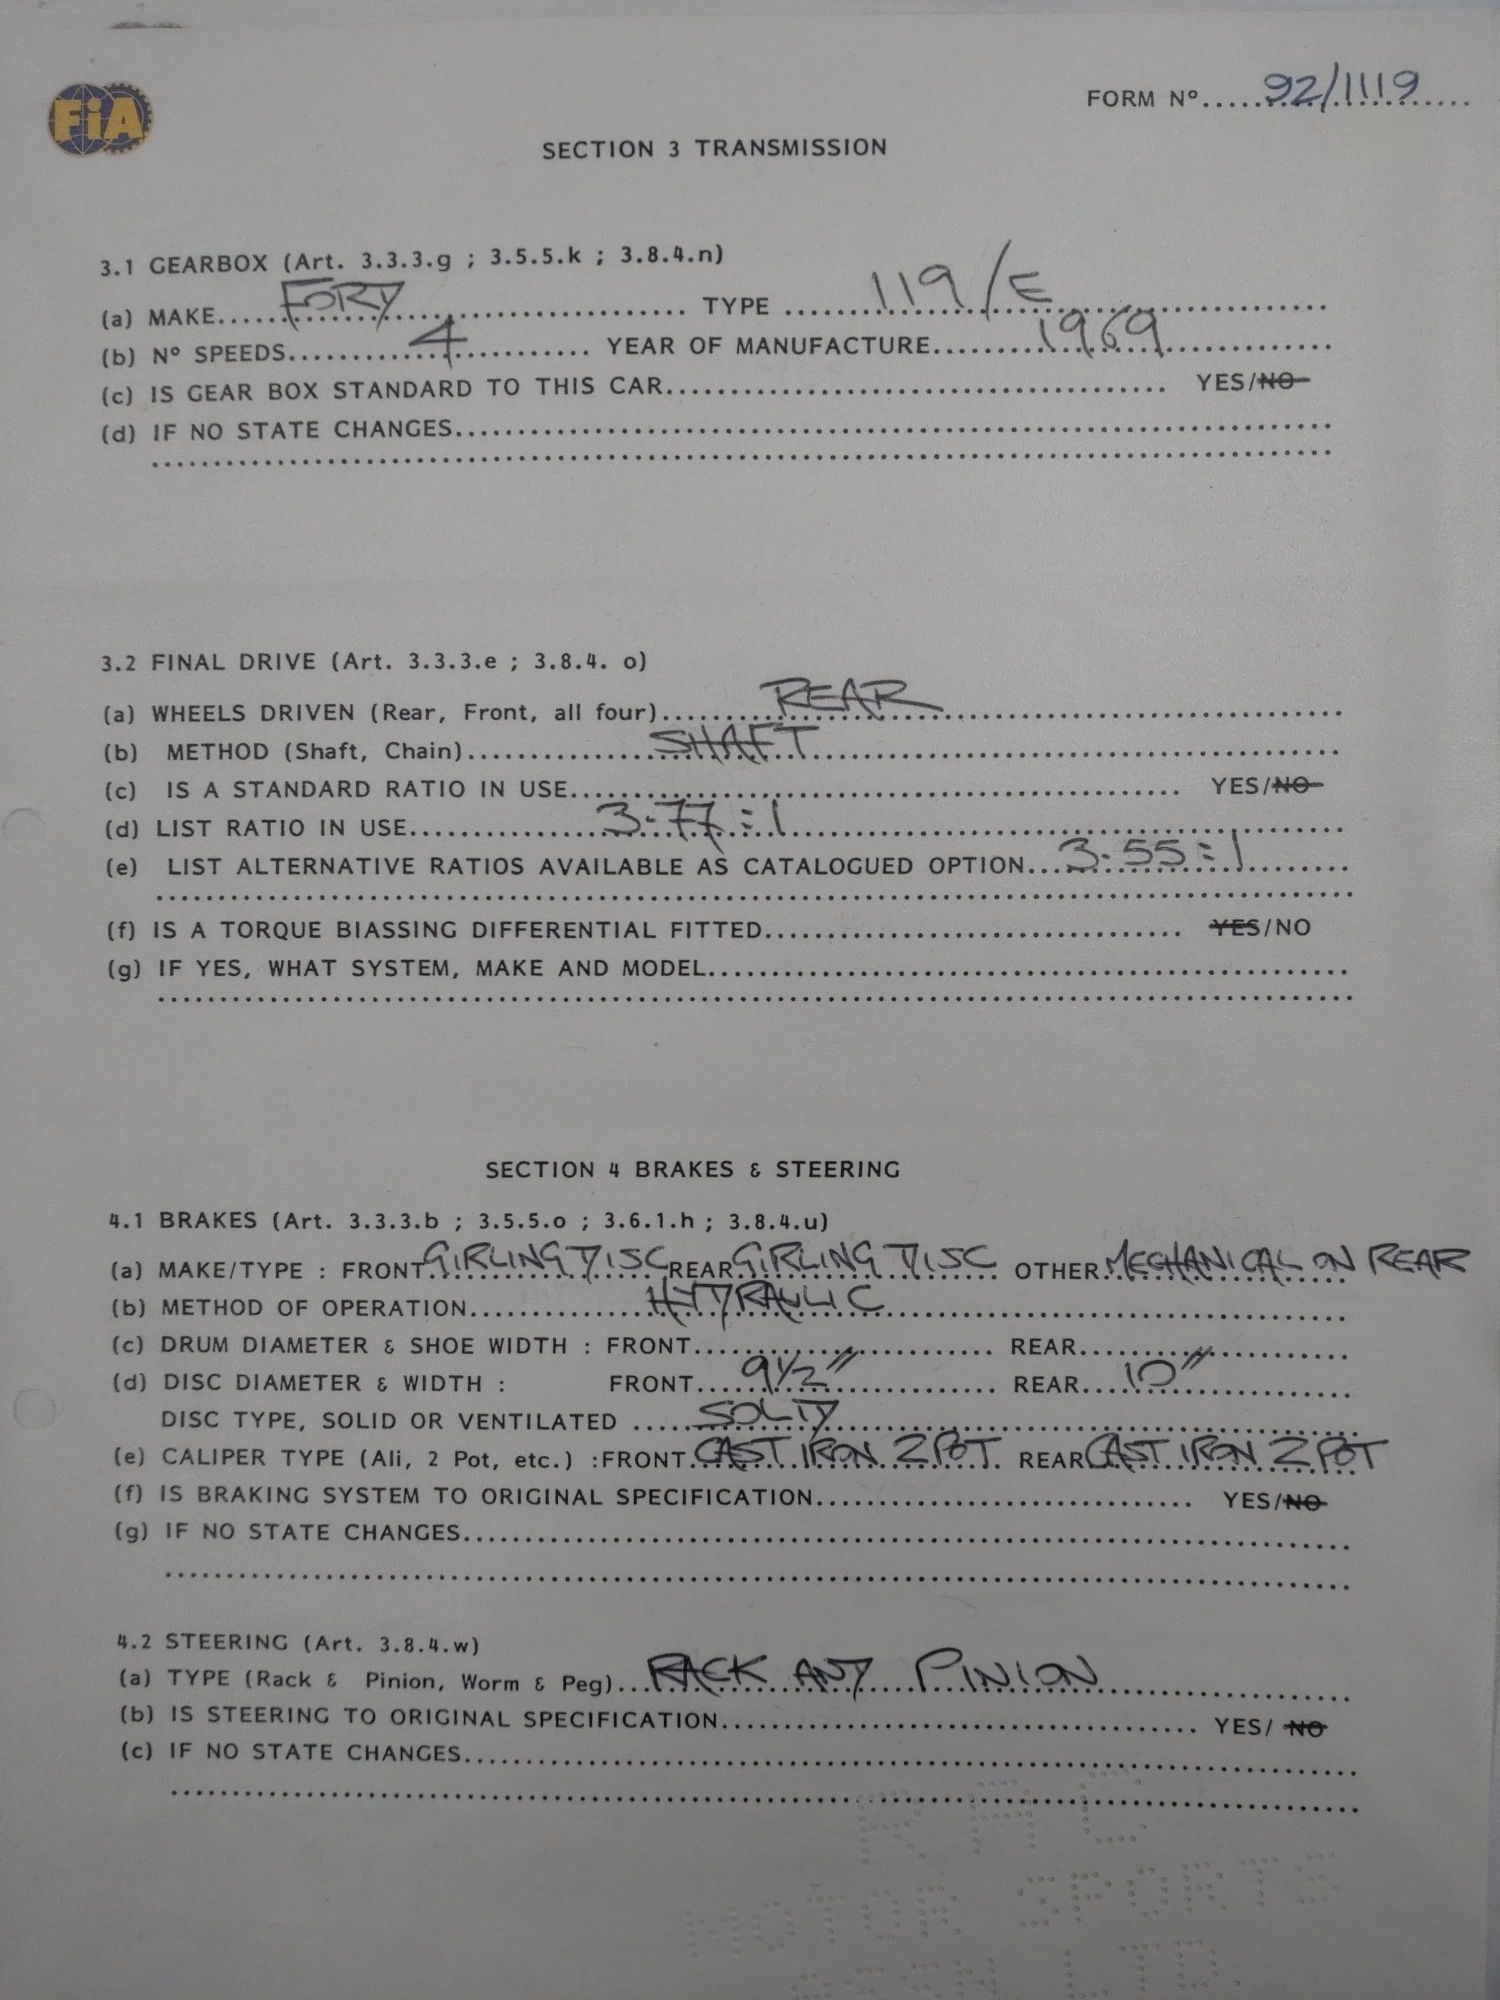 FiA
FORM Nº.....92/1119....
SECTION 3 TRANSMISSION
3.1 GEARBOX (Art. 3.3.3.g ; 3.5.5.k ; 3.8.4.n)
(a) MAKE.....FORD..................... TYPE ......119/E..................
(b) Nº SPEEDS.........4......... YEAR OF MANUFACTURE.......1969.............
(c) IS GEAR BOX STANDARD TO THIS CAR................................ YES/NO
(d) IF NO STATE CHANGES.........................................................
................................................................................
3.2 FINAL DRIVE (Art. 3.3.3.e ; 3.8.4. o)
(a) WHEELS DRIVEN (Rear, Front, all four).......REAR..........................
(b) METHOD (Shaft, Chain)............SHAFT..................................
(c) IS A STANDARD RATIO IN USE....................................... YES/NO
(d) LIST RATIO IN USE............3.77:1....................................
(e) LIST ALTERNATIVE RATIOS AVAILABLE AS CATALOGUED OPTION...3.55:1.......
................................................................................
(f) IS A TORQUE BIASSING DIFFERENTIAL FITTED........................... YES/NO
(g) IF YES, WHAT SYSTEM, MAKE AND MODEL.........................................
................................................................................
SECTION 4 BRAKES & STEERING
4.1 BRAKES (Art. 3.3.3.b ; 3.5.5.o ; 3.6.1.h ; 3.8.4.u)
(a) MAKE/TYPE : FRONT GIRLING DISC REAR GIRLING DISC OTHER MECHANICAL ON REAR
(b) METHOD OF OPERATION............HYDRAULIC..............................
(c) DRUM DIAMETER & SHOE WIDTH : FRONT.................... REAR..................
(d) DISC DIAMETER & WIDTH : FRONT....9½"............ REAR....10"..........
DISC TYPE, SOLID OR VENTILATED .....SOLID..................................
(e) CALIPER TYPE (Ali, 2 Pot, etc.) :FRONT CAST IRON 2 POT REAR CAST IRON 2 POT
(f) IS BRAKING SYSTEM TO ORIGINAL SPECIFICATION......................... YES/NO
(g) IF NO STATE CHANGES.........................................................
................................................................................
4.2 STEERING (Art. 3.8.4.w)
(a) TYPE (Rack & Pinion, Worm & Peg)...RACK AND PINION.................
(b) IS STEERING TO ORIGINAL SPECIFICATION............................... YES/ NO
(c) IF NO STATE CHANGES.........................................................
................................................................................
MOTOR SPORTS
LTD.